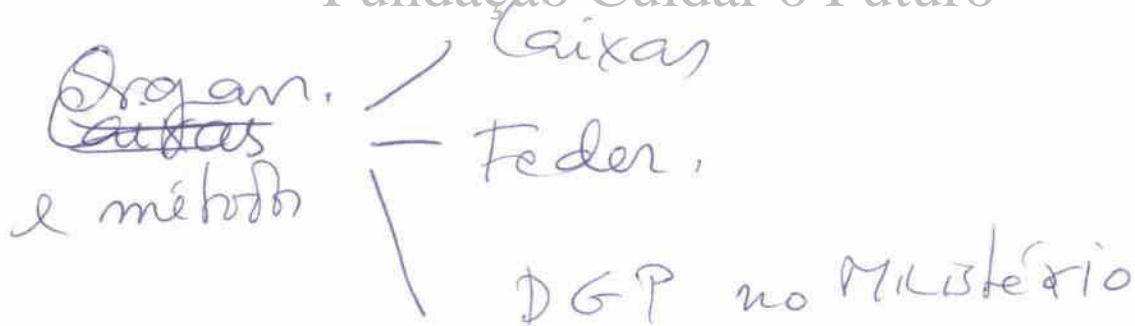 Fundação Cuidar o Futuro
Caixas
Organ.
Caixas
e método
Feder.
DGP no Ministério